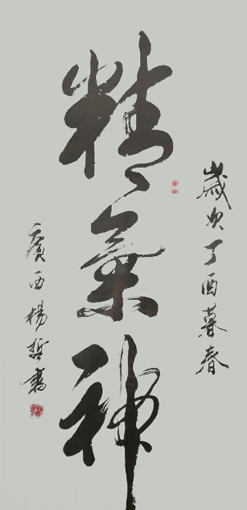 歲次丁酉暮春
精氣神
廣西楊哲書